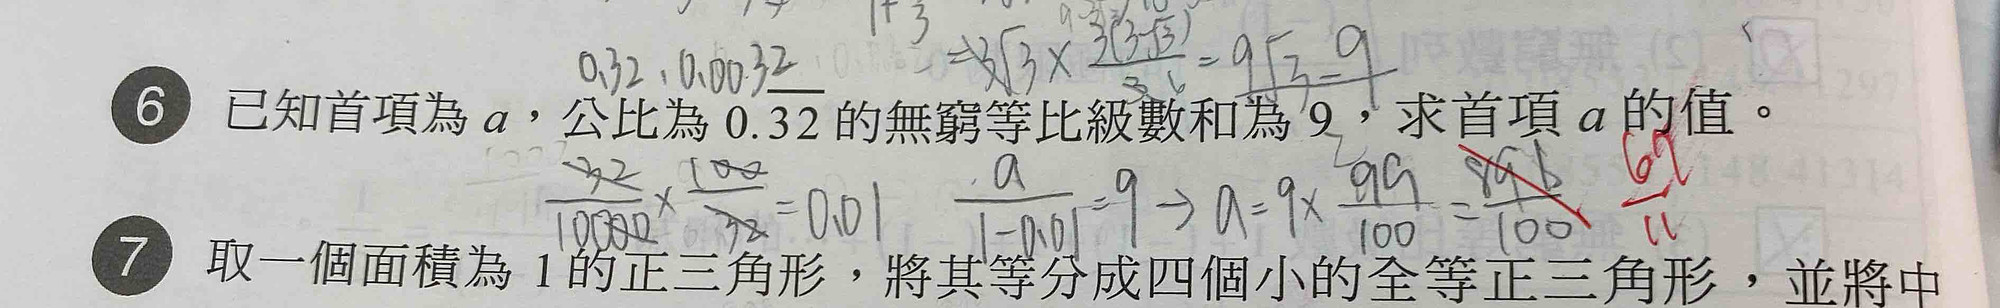 =3√3 × 3(3-√3) = 9√3-9
0.32, 0.0032
6 已知首項為 a,公比為 0.3̅2̅ 的無窮等比級數和為 9,求首項 a 的值。
32/10000 × 100/32 = 0.01 a/(1-0.01) = 9 → a = 9 × 99/100 = 891/100 67/11
7 取一個面積為 1 的正三角形,將其等分成四個小的全等正三角形,並將中